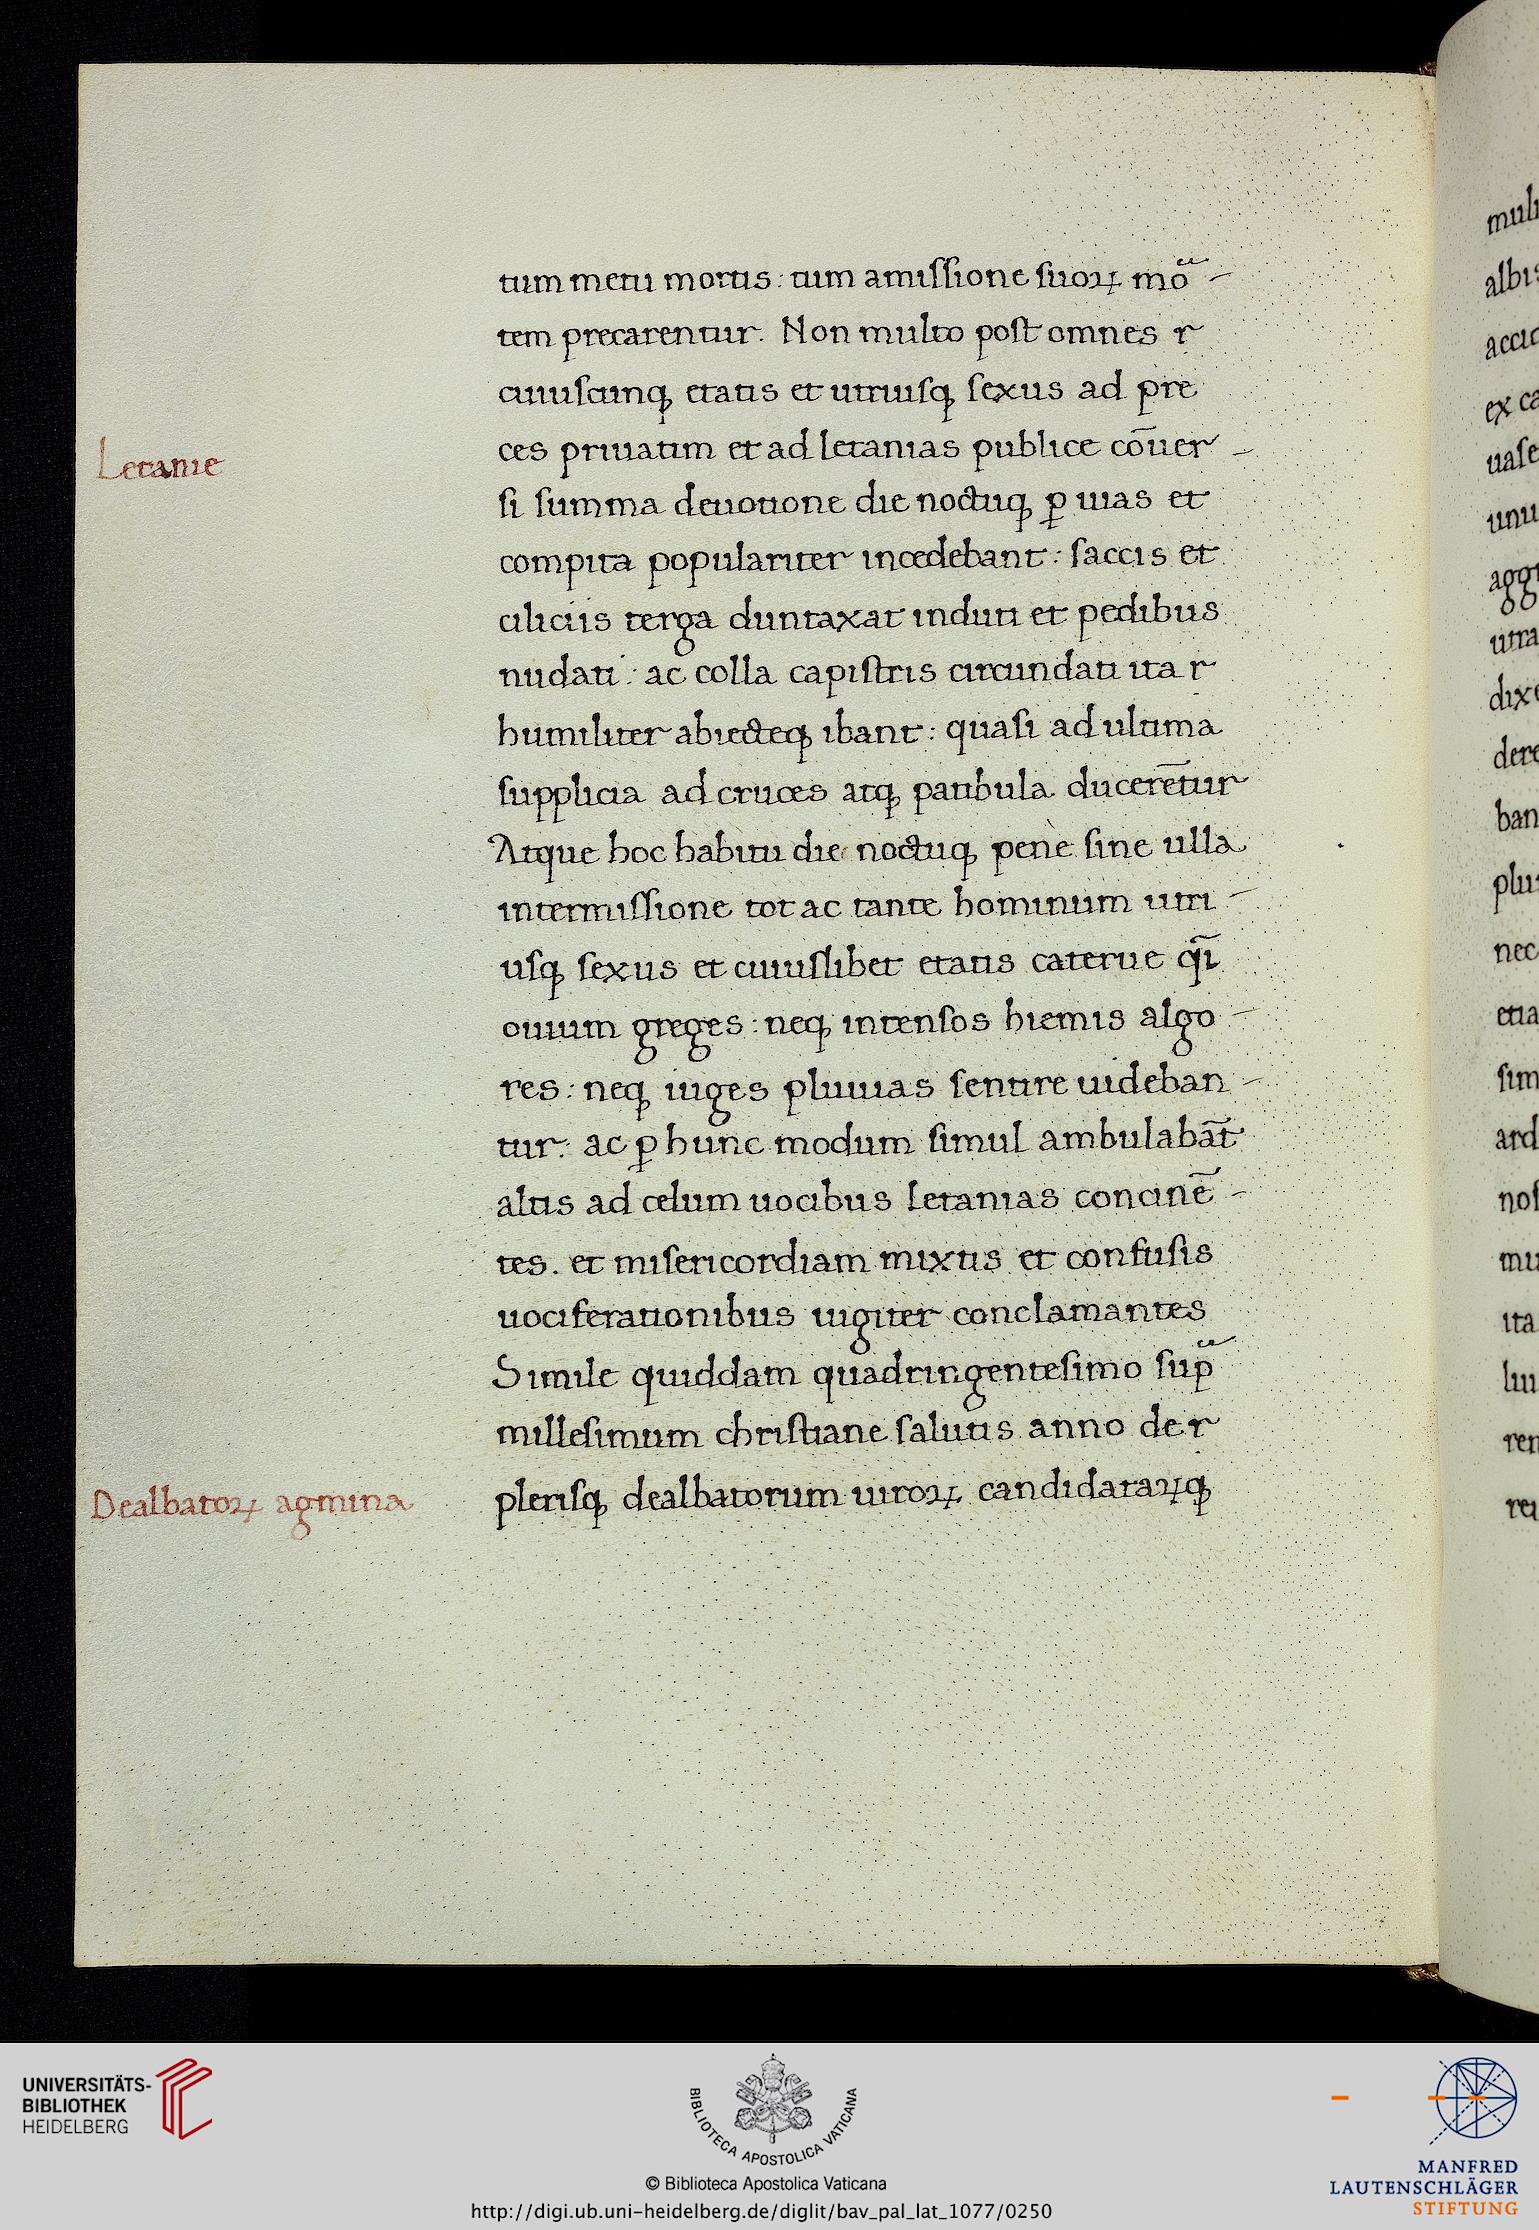 tum metu mortis: tum amissione suoꝝ mo᷑ -
tem precarentur. Non multo post omnes r
cuiuscunqꝫ etatis et utriusqꝫ sexus ad pre
Letanie
ces priuatim et ad letanias publice cōuer -
si summa deuotione die noctuqꝫ ꝑ uias et
compita populariter incedebant: saccis et
ciliciis terga duntaxat induti et pedibus
nudati: ac colla capistris circundati ita r
humiliter abiecteqꝫ ibant: quasi ad ultima
supplicia ad cruces atqꝫ patibula ducerēt̄ur
Atque hoc habitu die noctuqꝫ penè sine ulla
intermissione tot ac tante hominum utri -
usqꝫ sexus et cuiuslibet etatis caterue qͣ̄i
ouium greges: neqꝫ intensos hiemis algo -
res: neqꝫ iuges pluuias sentire uideban -
tur: ac ꝑ hunc modum simul ambulabāt
altis ad celum uocibus letanias concinē -
tes. et misericordiam mixtis et confusis
uociferationibus iugiter conclamantes
Simile quiddam quadringentesimo sup᷑
millesimum christiane salutis anno de r
Dealbatoꝝ agmina
plerisqꝫ dealbatorum uiroꝝ candidataꝝqꝫ
mul
albis
accid
ex ca
uase
unu
aggr
utra
dixe
dere
ban
plu
nec
etia
sim
ard
nos
mu
ita
liu
ren
rei
UNIVERSITÄTS-
BIBLIOTHEK
HEIDELBERG
BIBLIOTECA APOSTOLICA VATICANA
© Biblioteca Apostolica Vaticana
http://digi.ub.uni-heidelberg.de/diglit/bav_pal_lat_1077/0250
MANFRED
LAUTENSCHLÄGER
STIFTUNG